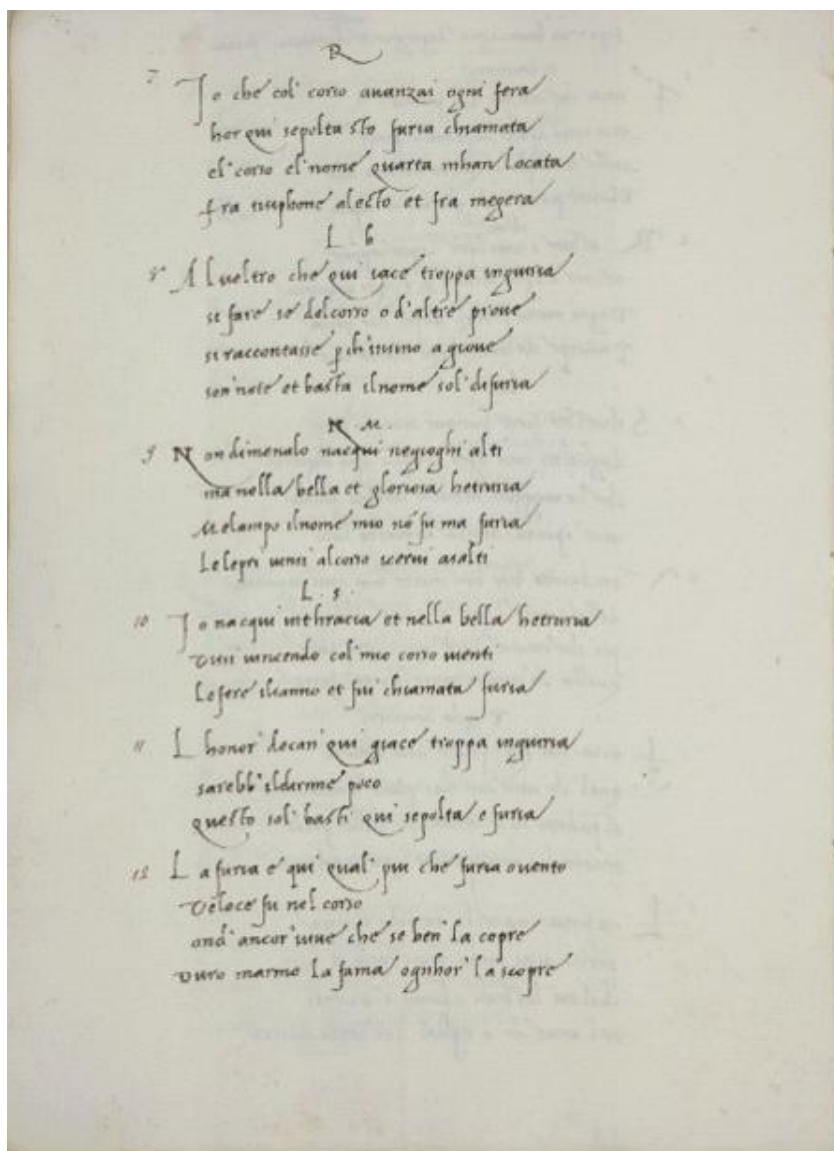 R
7 Io che col' corso auanzai ogni fera
hor qui sepolta sto furia chiamata
el' corso el' nome quarta mhan locata
fra tisiphone alecto et fra megera
L. b
8 Al ueltro che qui iace troppa ingiuria
si fare se delcorso o d'altre proue
si raccontasse ꝑch'insino a gioue
son' note et basta ilnome sol' difuria
N M.
9 Non dimenalo nacqui negioghi alti
ma nella bella et gloriosa hetruria
Melampo ilnome mio nō fu ma furia
Le lepri uinsi alcorso icerui asalti
L. s.
10 Io nacqui inthracia et nella bella hetruria
Vissi uincendo col' mio corso iuenti
Lefere et fui chiamata furia
11 L honor' decan' qui giace troppa ingiuria
sarebb' ildirme poco
questo sol' basti qui sepolta e furia
12 La furia e qui qual' piu che furia ouento
Veloce fu nel corso
ond' ancor' uiue che se ben' la copre
Duro marmo La fama ognhor' la scopre